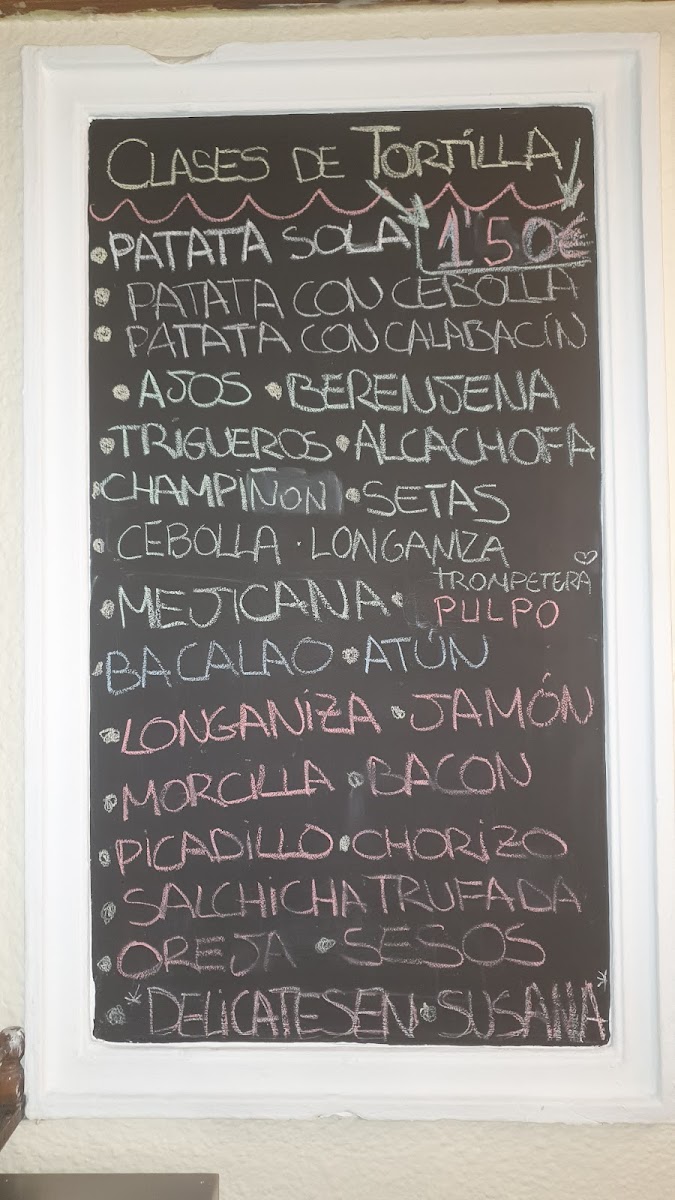 CLASES DE TORTILLA
• PATATA SOLA 1'50€
• PATATA CON CEBOLLA
• PATATA CON CALABACÍN
• AJOS • BERENJENA
• TRIGUEROS • ALCACHOFA
• CHAMPIÑON • SETAS
• CEBOLLA · LONGANIZA
TROMPETERA ♡
• MEJICANA • PULPO
• BACALAO • ATÚN
• LONGANIZA • JAMÓN
• MORCILLA • BACON
• PICADILLO • CHORIZO
• SALCHICHA TRUFADA
• OREJA • SESOS
• *DELICATESEN • SUSANA*